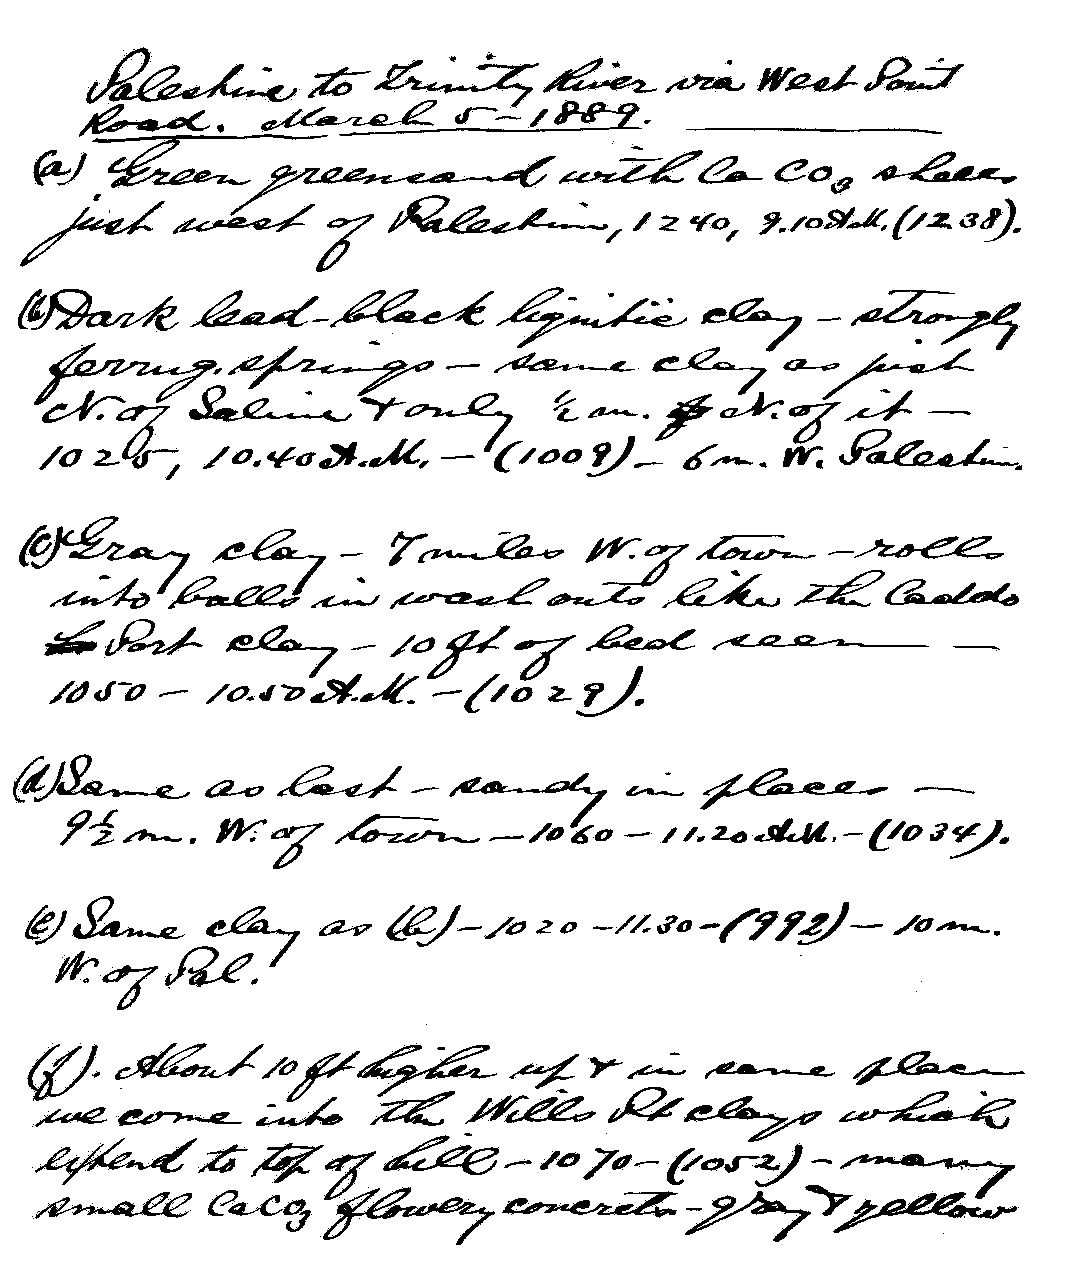 Palestine to Trinity River via West Point
Road. March 5 - 1889.
(a) Green greensand with CaCO3 shells
just west of Palestine, 1240, 9.10 A.M. (1238).
(b) Dark lead-black lignitic clay - strongly
ferrug. springs - same clay as just
N. of Saline & only ½ m. N. of it -
1025, 10.40 A.M. - (1009) - 6 m. W. Palestine.
(c) Gray clay - 7 miles W. of town - rolls
into balls in wash outs like the Caddo
Port clay - 10 ft of bed seen -
1050 - 10.50 A.M. - (1029).
(d) Same as last - sandy in places -
9½ m. W. of town - 1060 - 11.20 A.M. - (1034).
(e) Same clay as (b) - 1020 - 11.30 - (992) - 10 m.
W. of Pal.
(f). About 10 ft higher up & in same place
we come into the Wills Pt clays which
extend to top of hill - 1070 - (1052) - many
small CaCO3 flowery concret. - gray & yellow